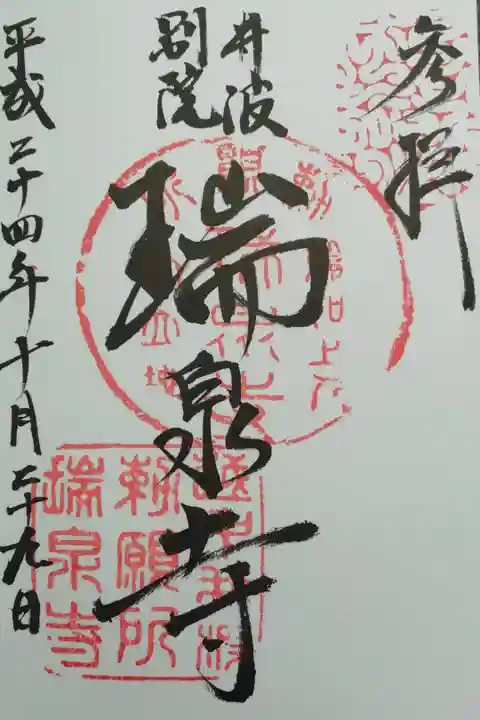 参拝
井波
別院
瑞泉寺
平成二十四年十月二十九日
越中井波
勅願所
瑞泉寺